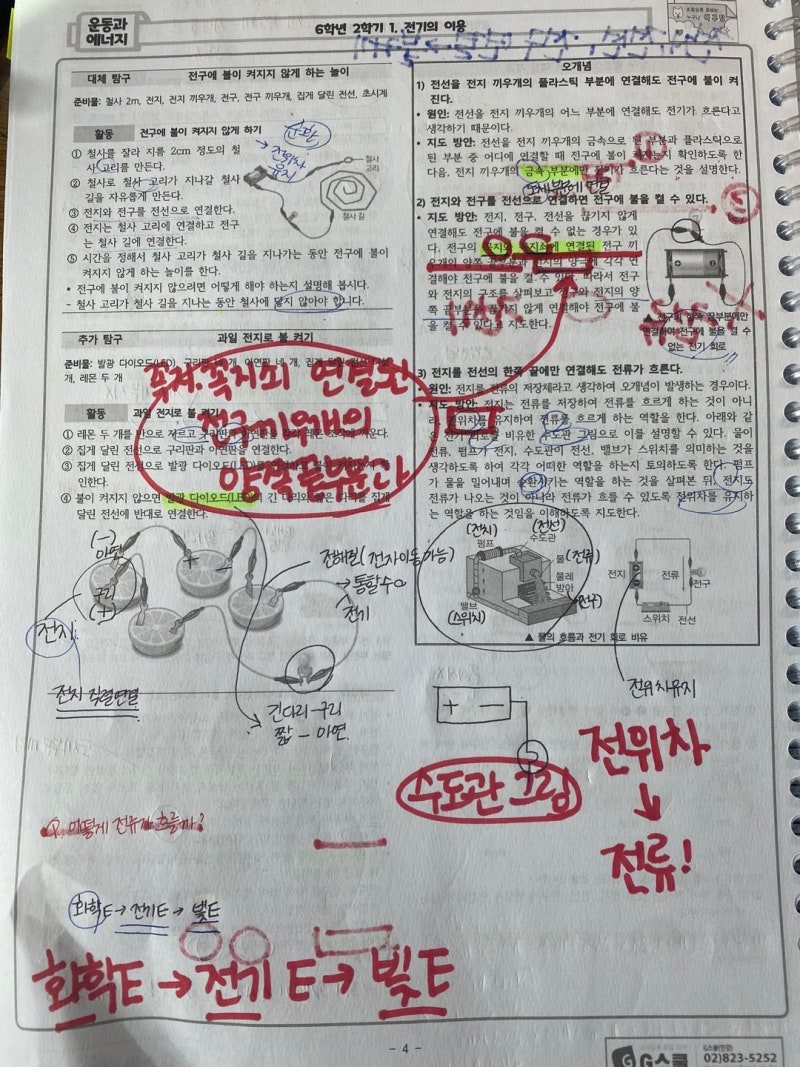 운동과
에너지
6학년 2학기 1. 전기의 이용
대체 탐구 전구에 불이 켜지지 않게 하는 놀이
준비물: 철사 2m, 전지, 전지 끼우개, 전구, 전구 끼우개, 집게 달린 전선, 초시계
활동 전구에 불이 켜지지 않게 하기
① 철사를 잘라 지름 2cm 정도의 철
사 고리를 만든다.
② 철사로 철사 고리가 지나갈 철사
길을 자유롭게 만든다.
③ 전지와 전구를 전선으로 연결한다.
④ 전지는 철사 고리에 연결하고 전구
는 철사 길에 연결한다.
⑤ 시간을 정해서 철사 고리가 철사 길을 지나가는 동안 전구에 불이
켜지지 않게 하는 놀이를 한다.
• 전구에 불이 켜지지 않으려면 어떻게 해야 하는지 설명해 봅시다.
- 철사 고리가 철사 길을 지나는 동안 철사에 닿지 않아야 합니다.
전위차
유지
철사
고리
철사 길
추가 탐구 과일 전지로 불 켜기
준비물: 발광 다이오드(LED), 구리판 네 개, 아연판 네 개, 집게 달린 전선
개, 레몬 두 개
활동 과일 전지로 불 켜기
① 레몬 두 개를 반으로 자르고
② 집게 달린 전선으로 구리판과 아연판을 연결한다.
③ 집게 달린 전선으로 발광 다이오드(LED)를
인한다.
④ 불이 켜지지 않으면 발광 다이오드(LED)의 긴 다리와 짧은 다리를 집게
달린 전선에 반대로 연결한다.
꼭지·꼭지쇠 연결된
전구 끼우개의
양쪽 끝부분과
(-)
아연
구리
(+)
+
-
전지
전지 직렬연결
전해질(전자 이동 가능)
→ 통할 수 ○
전기
긴다리-구리
짧 - 아연
오개념
1) 전선을 전지 끼우개의 플라스틱 부분에 연결해도 전구에 불이 켜
진다.
• 원인: 전선을 전지 끼우개의 어느 부분에 연결해도 전기가 흐른다고
생각하기 때문이다.
• 지도 방안: 전선을 전지 끼우개의 금속으로 된 부분과 플라스틱으로
된 부분 중 어디에 연결할 때 전구에 불이 켜지는지 확인하도록 한
다음, 전지 끼우개의 금속 부분에만 전기가 흐른다는 것을 설명한다.
2) 전지와 전구를 전선으로 연결하면 전구에 불을 켤 수 있다.
• 지도 방안: 전지, 전구, 전선을 끊기지 않게
연결해도 전구에 불을 켤 수 없는 경우가 있
다. 전구의 꼭지와 꼭지쇠에 연결된 전구 끼
우개의 양쪽 끝부분과 전지의 양극에 각각 연
결해야 전구에 불을 켤 수 있다. 따라서 전구
와 전지의 구조를 살펴보고 전구와 전지의 양
쪽 끝부분을 끊기지 않게 연결해야 전구에 불
을 켤 수 있다고 지도한다.
▲ 전구의 한쪽 끝부분에만
연결하여 전구에 불을 켤 수
없는 전기 회로
3) 전지를 전선의 한쪽 끝에만 연결해도 전류가 흐른다.
• 원인: 전지를 전류의 저장체라고 생각하여 오개념이 발생하는 경우이다.
• 지도 방안: 전지는 전류를 저장하여 전류를 흐르게 하는 것이 아니
라, 전위차를 유지하여 전류를 흐르게 하는 역할을 한다. 아래와 같
은 전기 회로를 비유한 수도관 그림으로 이를 설명할 수 있다. 물이
전류, 펌프가 전지, 수도관이 전선, 밸브가 스위치를 의미하는 것을
생각하도록 하여 각각 어떠한 역할을 하는지 토의하도록 한다. 펌프
가 물을 밀어내며 순환시키는 역할을 하는 것을 살펴본 뒤, 전지도
전류가 나오는 것이 아니라 전류가 흐를 수 있도록 전위차를 유지하
는 역할을 하는 것임을 이해하도록 지도한다.
(전지)
펌프
(전선)
수도관
물 (전류)
물레
방아
(전구)
밸브
(스위치)
▲ 물의 흐름과 전기 회로 비유
전지
전류
전구
스위치
전선
전위차유지
+ -
수도관 그림
전위차
↓
전류!
Q. 어떻게 전류가 흐를까?
화학E → 전기E → 빛E
화학E → 전기E → 빛E
- 4 -
G스쿨
G스쿨(인강)
02)823-5252